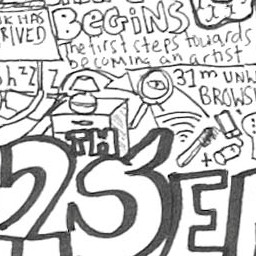 K HAS
RIVED
BEGINS
The first steps towards
becoming an artist
zz
Z
31m UNW
BROWS
TH
25
SE